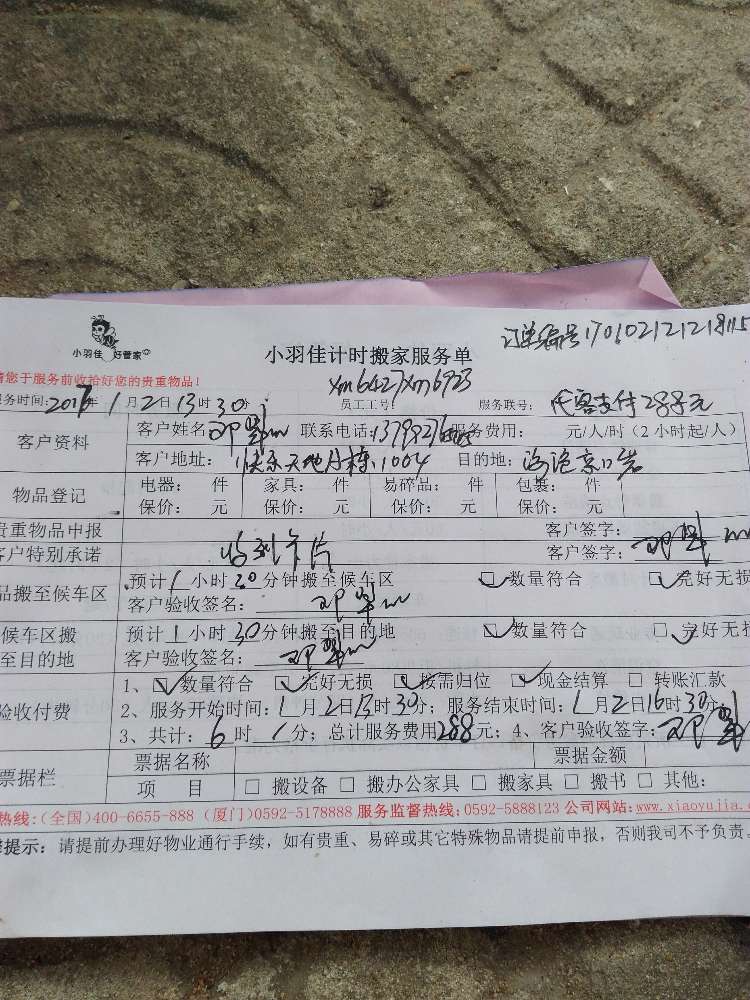 订单编号170102121218115
小羽佳 好管家
小羽佳计时搬家服务单
请您于服务前收拾好您的贵重物品!
xm6427xm6923
服务时间:2017年1月2日13时30分 员工工号: 服务联号: 代客支付288元
客户资料
客户姓名: 联系电话: 服务费用: 元/人/时(2小时起/人)
客户地址:快乐天地 1004 目的地:
物品登记
电器: 件 家具: 件 易碎品: 件 包装: 件
保价: 元 保价: 元 保价: 元 保价: 元
贵重物品申报 客户签字:
客户特别承诺 收到卡片 客户签字:
品搬至候车区
预计1小时30分钟搬至候车区 □数量符合 □完好无损
客户验收签名:
候车区搬
至目的地
预计1小时30分钟搬至目的地 □数量符合 □完好无损
客户验收签名:
验收付费
1、□数量符合 □完好无损 □按需归位 □现金结算 □转账汇款
2、服务开始时间:1月2日13时30分;服务结束时间:1月2日16时30分;
3、共计:6时/分;总计服务费用288元;4、客户验收签字:
票据栏
票据名称 票据金额
项 目 □搬设备 □搬办公家具 □搬家具 □搬书 □其他:
热线:(全国)400-6655-888 (厦门)0592-5178888 服务监督热线:0592-5888123 公司网站:www.xiaoyujia.c
提示:请提前办理好物业通行手续,如有贵重、易碎或其它特殊物品请提前申报,否则我司不予负责。